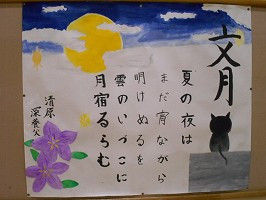 文月
夏の夜は
まだ宵ながら
明けぬるを
雲のいづこに
月宿るらむ
清原
深養父